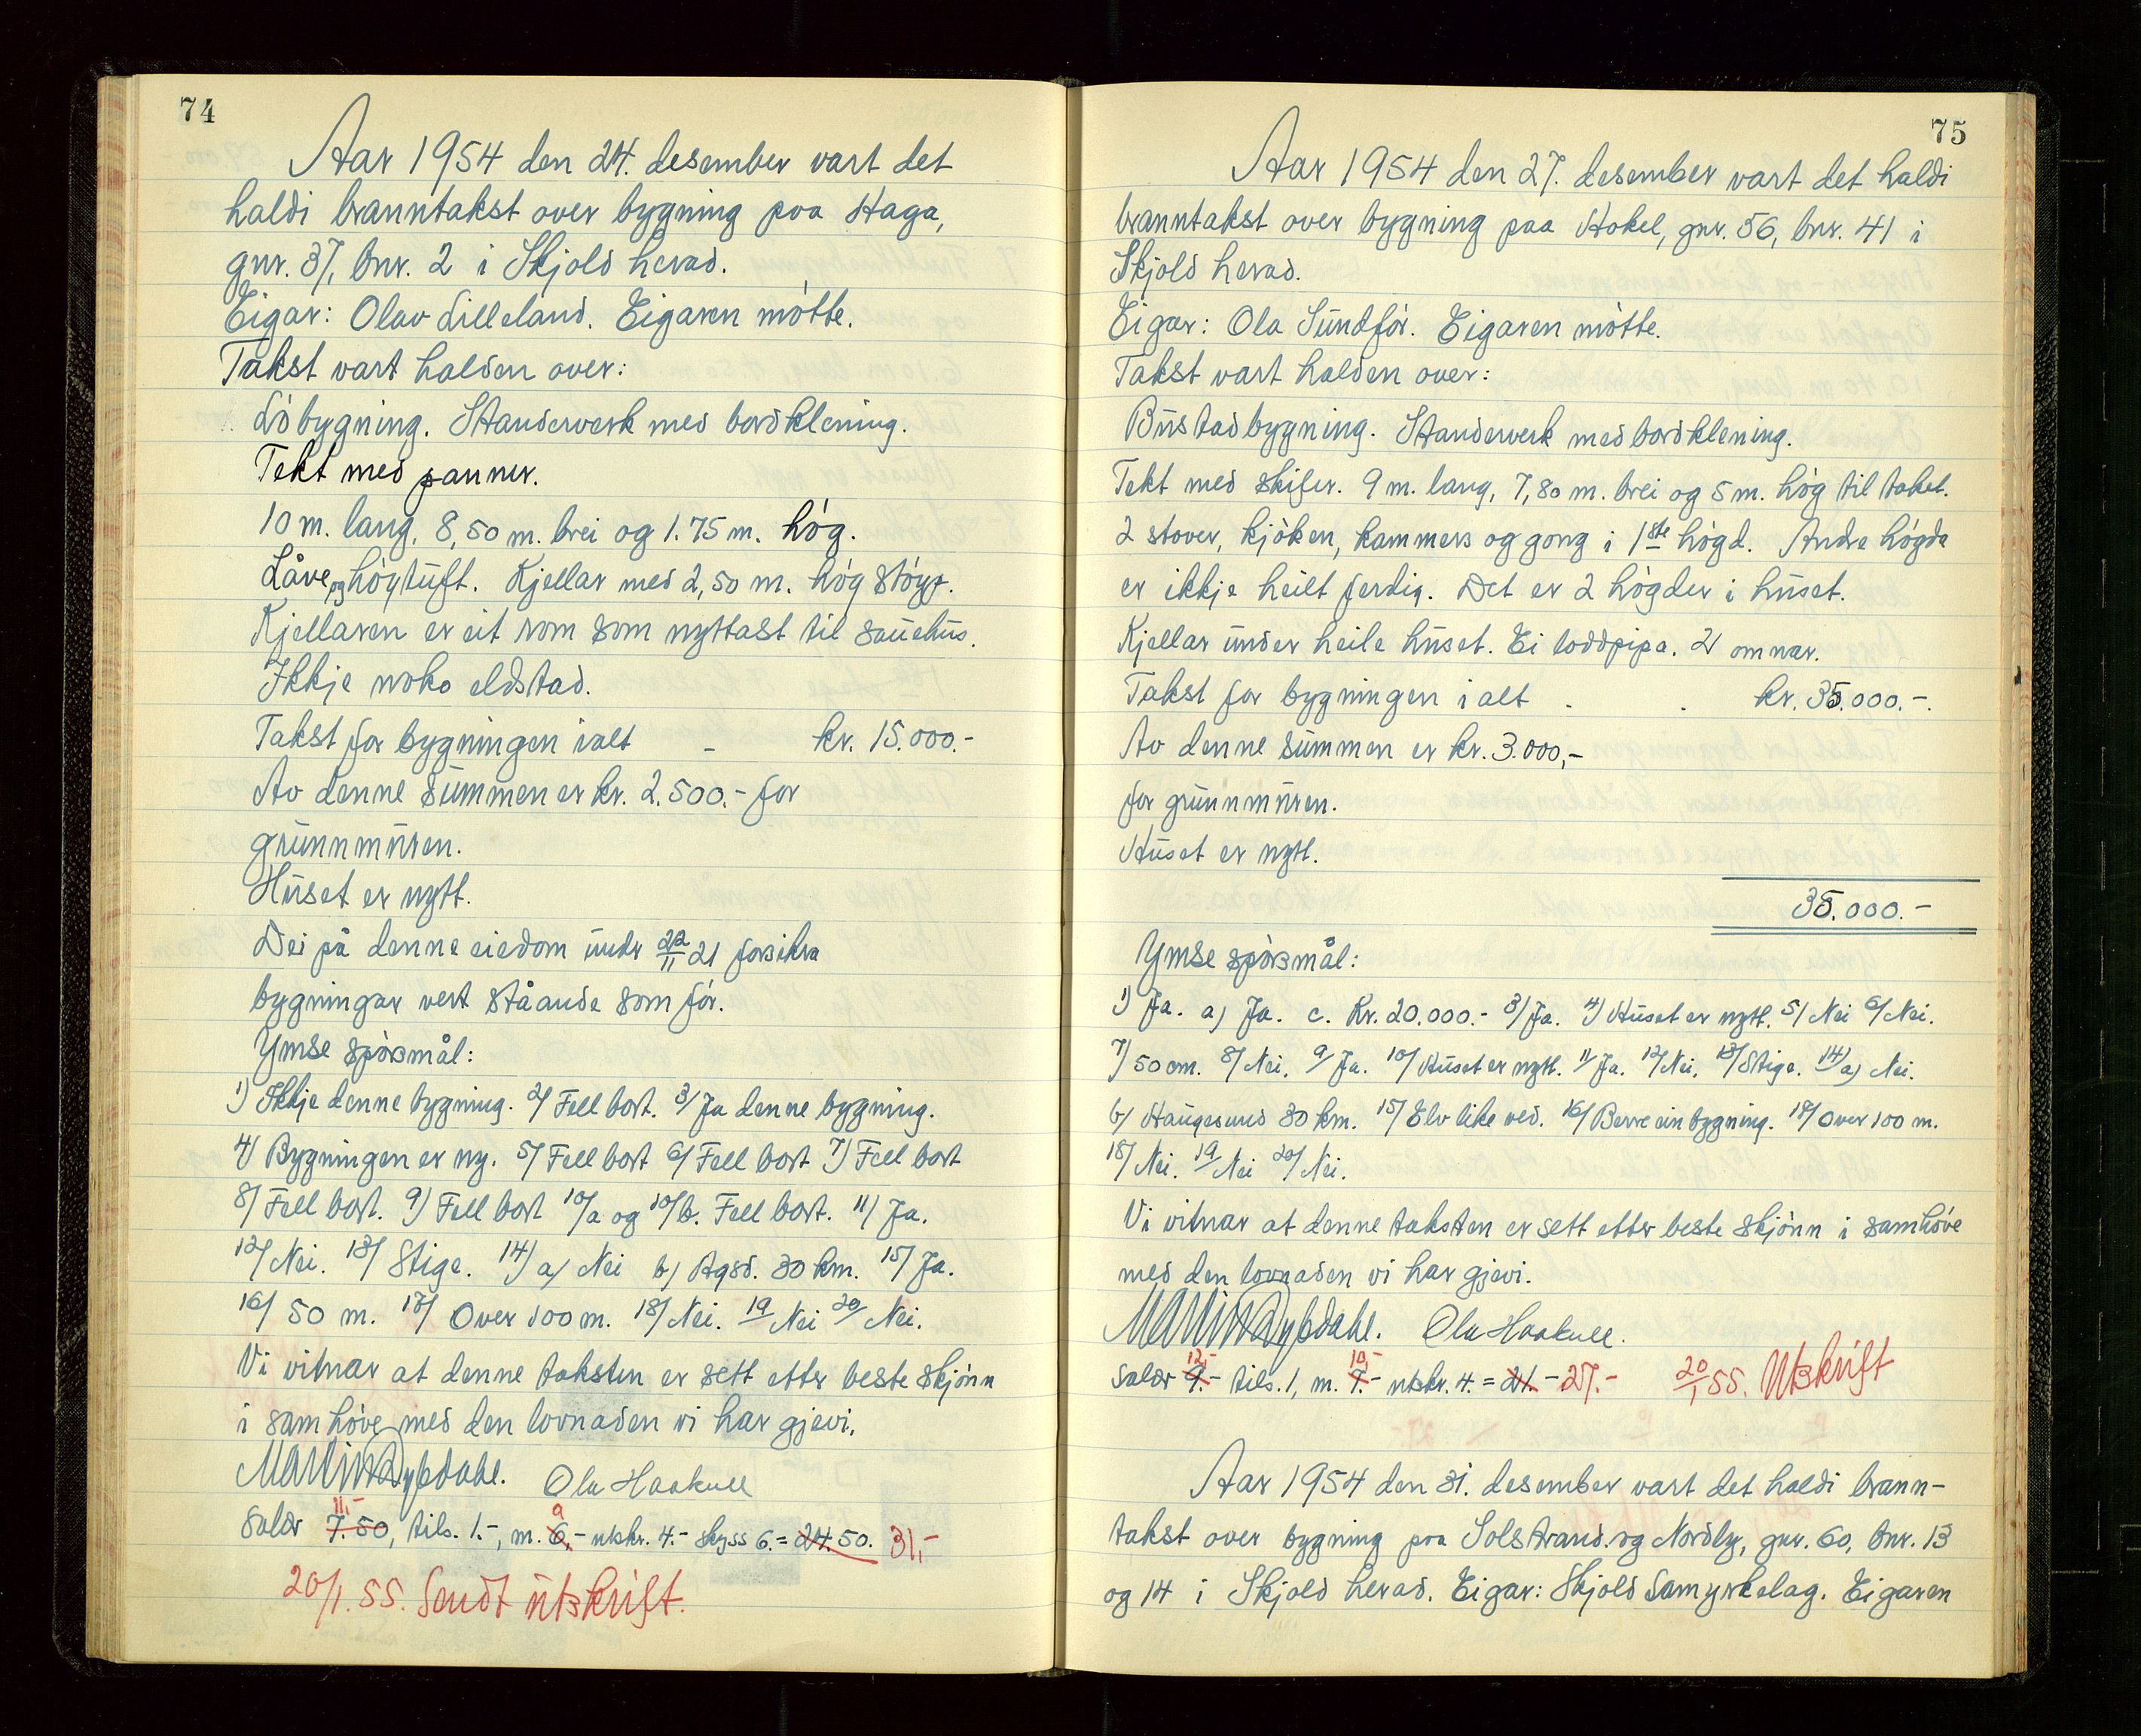 74
Aar 1954 den 24. desember vart det
haldi branntakst over bygning paa Haga,
gnr. 37, bnr. 2 i Skjold herad.
Eigar: Olav Lilleland. Eigaren møtte.
Takst vart halden over:
Løbygning. Standerverk med bordklening.
Tekt med panner.
10 m. lang, 8,50 m. brei og 1.75 m. høg.
Låve og høytuft. Kjellar med 2,50 m. høg støyp.
Kjellaren er eit rom som nyttast til sauehus.
Ikkje noko eldstad.
Takst for bygningen ialt - kr. 15.000.-
Av denne summen er kr. 2.500.- for
grunnmuren.
Huset er nytt.
Dei på denne eiedom undr 22/11 21 forsikra
bygningar vert ståande som før.
Ymse spørsmål:
1) Ikkje denne bygning. 2/ Fell bort. 3/ Ja denne bygning.
4) Bygningen er ny. 5/ Fell bort 6/ Fell bort 7) Fell bort
8/ Fell bort. 9) Fell bort 10/a og 10/b. Fell bort. 11/ Ja.
12/ Nei. 13/ Stige. 14) a) Nei b) Hgsd. 30 km. 15/ Ja.
16/ 50 m. 17/ Over 100 m. 18/ Nei. 19 Nei 20/ Nei.
Vi vitnar at denne taksten er sett etter beste skjønn
i samhøve med den lovnaden vi har gjevi.
Martin Dybdahl. Ola Haakull
11,- 9
Salær 7.50, tils. 1.-, m. 6,- utskr. 4.- skyss 6. = 24.50. 31,-
20/1. 55. Sendt utskrift.
75
Aar 1954 den 27. desember vart det haldi
branntakst over bygning paa Hokel, gnr. 56, bnr. 41 i
Skjold herad.
Eigar: Ola Sundfør. Eigaren møtte.
Takst vart halden over:
Bustadbygning. Standerverk med bordklening.
Tekt med skifer. 9 m. lang, 7,80 m. brei og 5 m. høg til taket.
2 stover, kjøken, kammers og gong i 1ste høgd. Andre høgda
er ikkje heilt ferdig. Det er 2 høgder i huset.
Kjellar under heile huset. Ei loddpipa. 2 omnar.
Takst for bygningen ialt . . kr. 35.000.-.
Av denne summen er kr. 3.000,-
for grunnmuren.
Huset er nytt.
35.000.-
Ymse spørsmål:
1) Ja. a) Ja. c. Kr. 20.000.- 3/ Ja. 4) Huset er nytt. 5/ Nei 6/ Nei.
7/ 50 cm. 8/ Nei. 9/ Ja. 10/ Huset er nytt. 11/ Ja. 12/ Nei. 13/ Stige. 14) a) Nei.
b) Haugesund 30 km. 15/ Elv like ved. 16/ Berre ein bygning. 17/ Over 100 m.
18/ Nei. 19 Nei 20/ Nei.
Vi vitnar at denne taksten er sett etter beste skjønn i samhøve
med den lovnaden vi har gjevi.
Martin Dybdahl. Ola Haakull.
12,- 10,-
Salær 9.- tils. 1, m. 7.- utskr. 4. = 21.- 27.- 20/1 55. Utskrift
Aar 1954 den 31. desember vart det haldi brann-
takst over bygning paa Solstrand og Nordly, gnr. 60, bnr. 13
og 14 i Skjold herad. Eigar: Skjold Samyrkelag. Eigaren